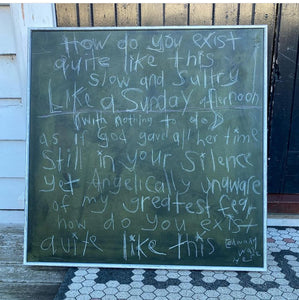 How do you exist
quite like this
slow and sultry
Like a Sunday afternoon
(with nothing to do)
as if God gave all her time
Still in your silence
yet Angelically unaware
of my greatest fear
how do you exist
quite like this